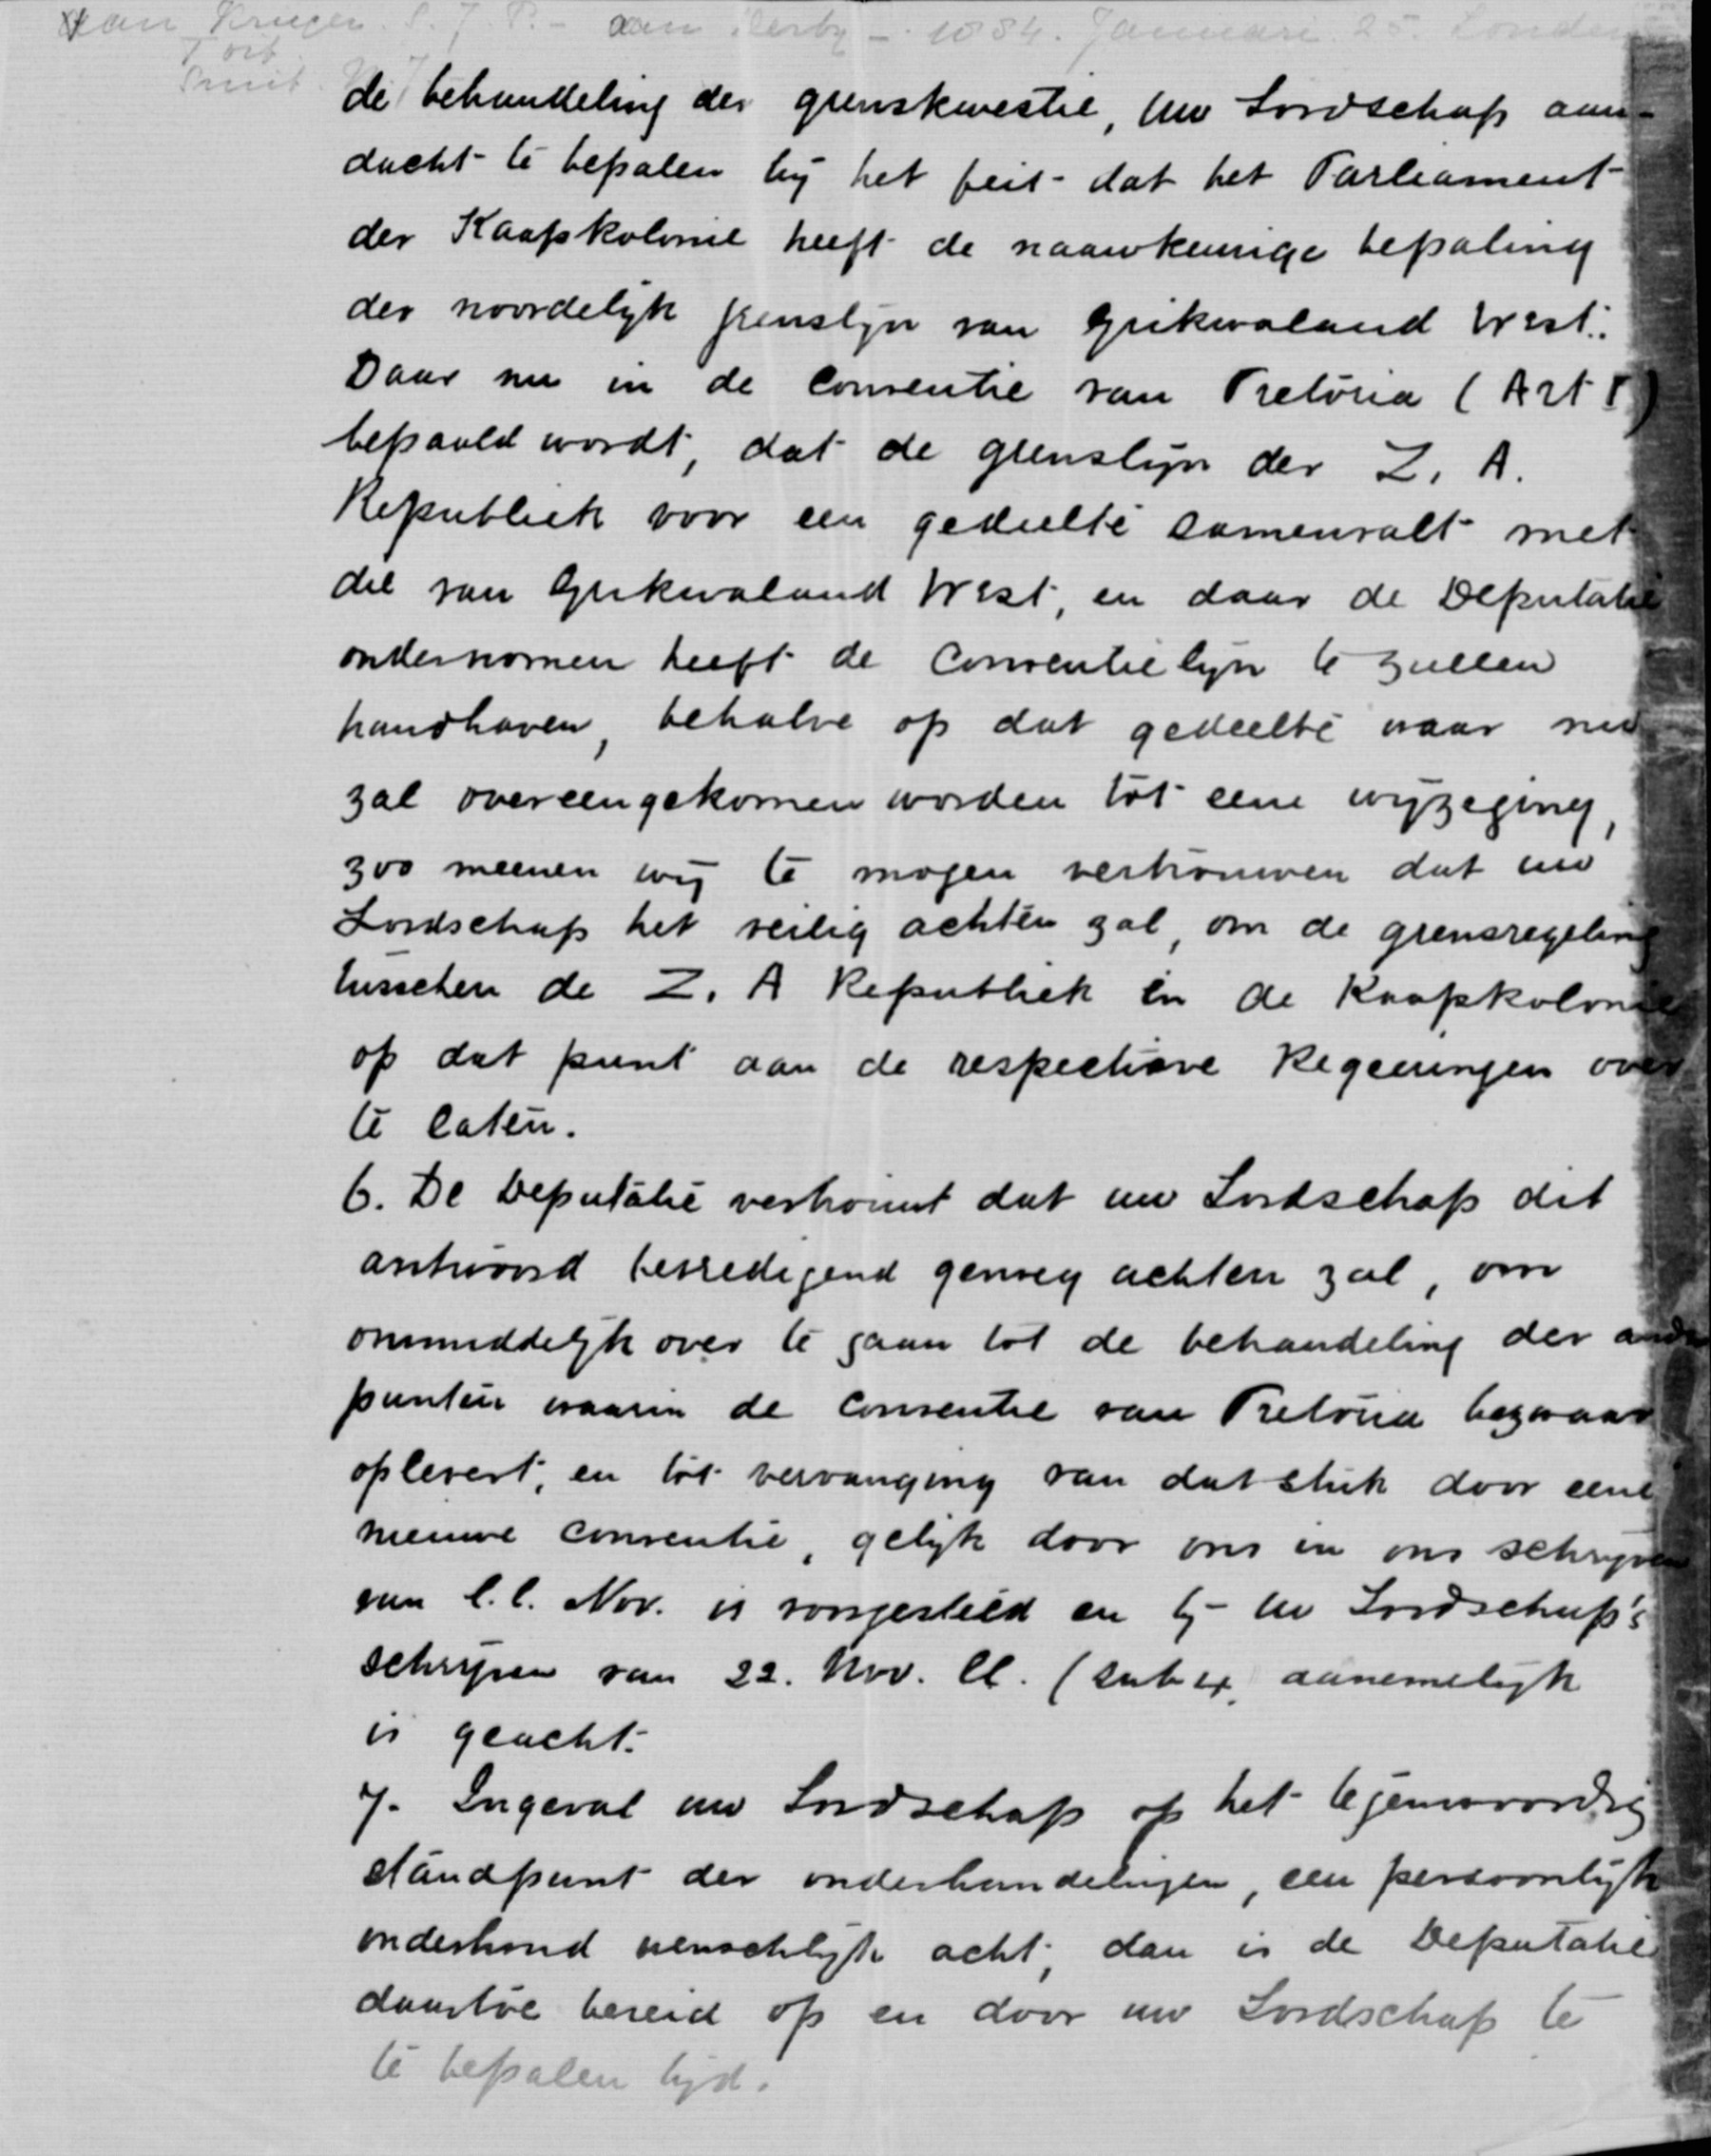 van Kruger. S. J. P. - aan Derby - 1884. Januari 25. Londen
Smit.
de behandeling der grenskwestie, uw Lordschap aan-
dacht te bepalen bij het feit dat het Parliament
der Kaapkolonie heeft de naauwkeurige bepaling
der noordelijk grenslijn van Griekwaland West.
Daar nu in de Conventie van Pretoria (Art I)
bepaald wordt, dat de grenslijn der Z. A.
Republiek voor een gedeelte samenvalt met
die van Griekwaland West, en daar de Deputatie
ondernomen heeft de Conventielijn te zullen
handhaven, behalve op dat gedeelte waar nu
zal overeengekomen worden tot eene wijzeging,
zoo meenen wij te mogen vertrouwen dat uw
Lordschap het veilig achten zal, om de grensregeling
tusschen de Z. A Republiek en de Kaapkolonie
op dat punt aan de respectieve Regeeringen over
te laten.
6. De Deputatie vertrouwt dat uw Lordschap dit
antwoord bevredigend genoeg achten zal, om
onmiddelijk over te gaan tot de behandeling der andre
punten waarin de Conventie van Pretoria bezwaar
oplevert, en tot vervanging van dat stuk door eene
nieuwe conventie, gelijk door ons in ons schrijven
van l.l. Nov. is voorgesteld en bij uw Lordschap's
schrijven van 22. Nov. ll. (sub 4, aannemelijk
is geacht.
7. Ingeval uw Lordschap op het tegenwoordig
standpunt der onderhandelingen, een persoonlijk
onderhoud wenschelijk acht, dan is de Deputatie
daartoe bereid op en door uw Lordschap te
te bepalen tijd.